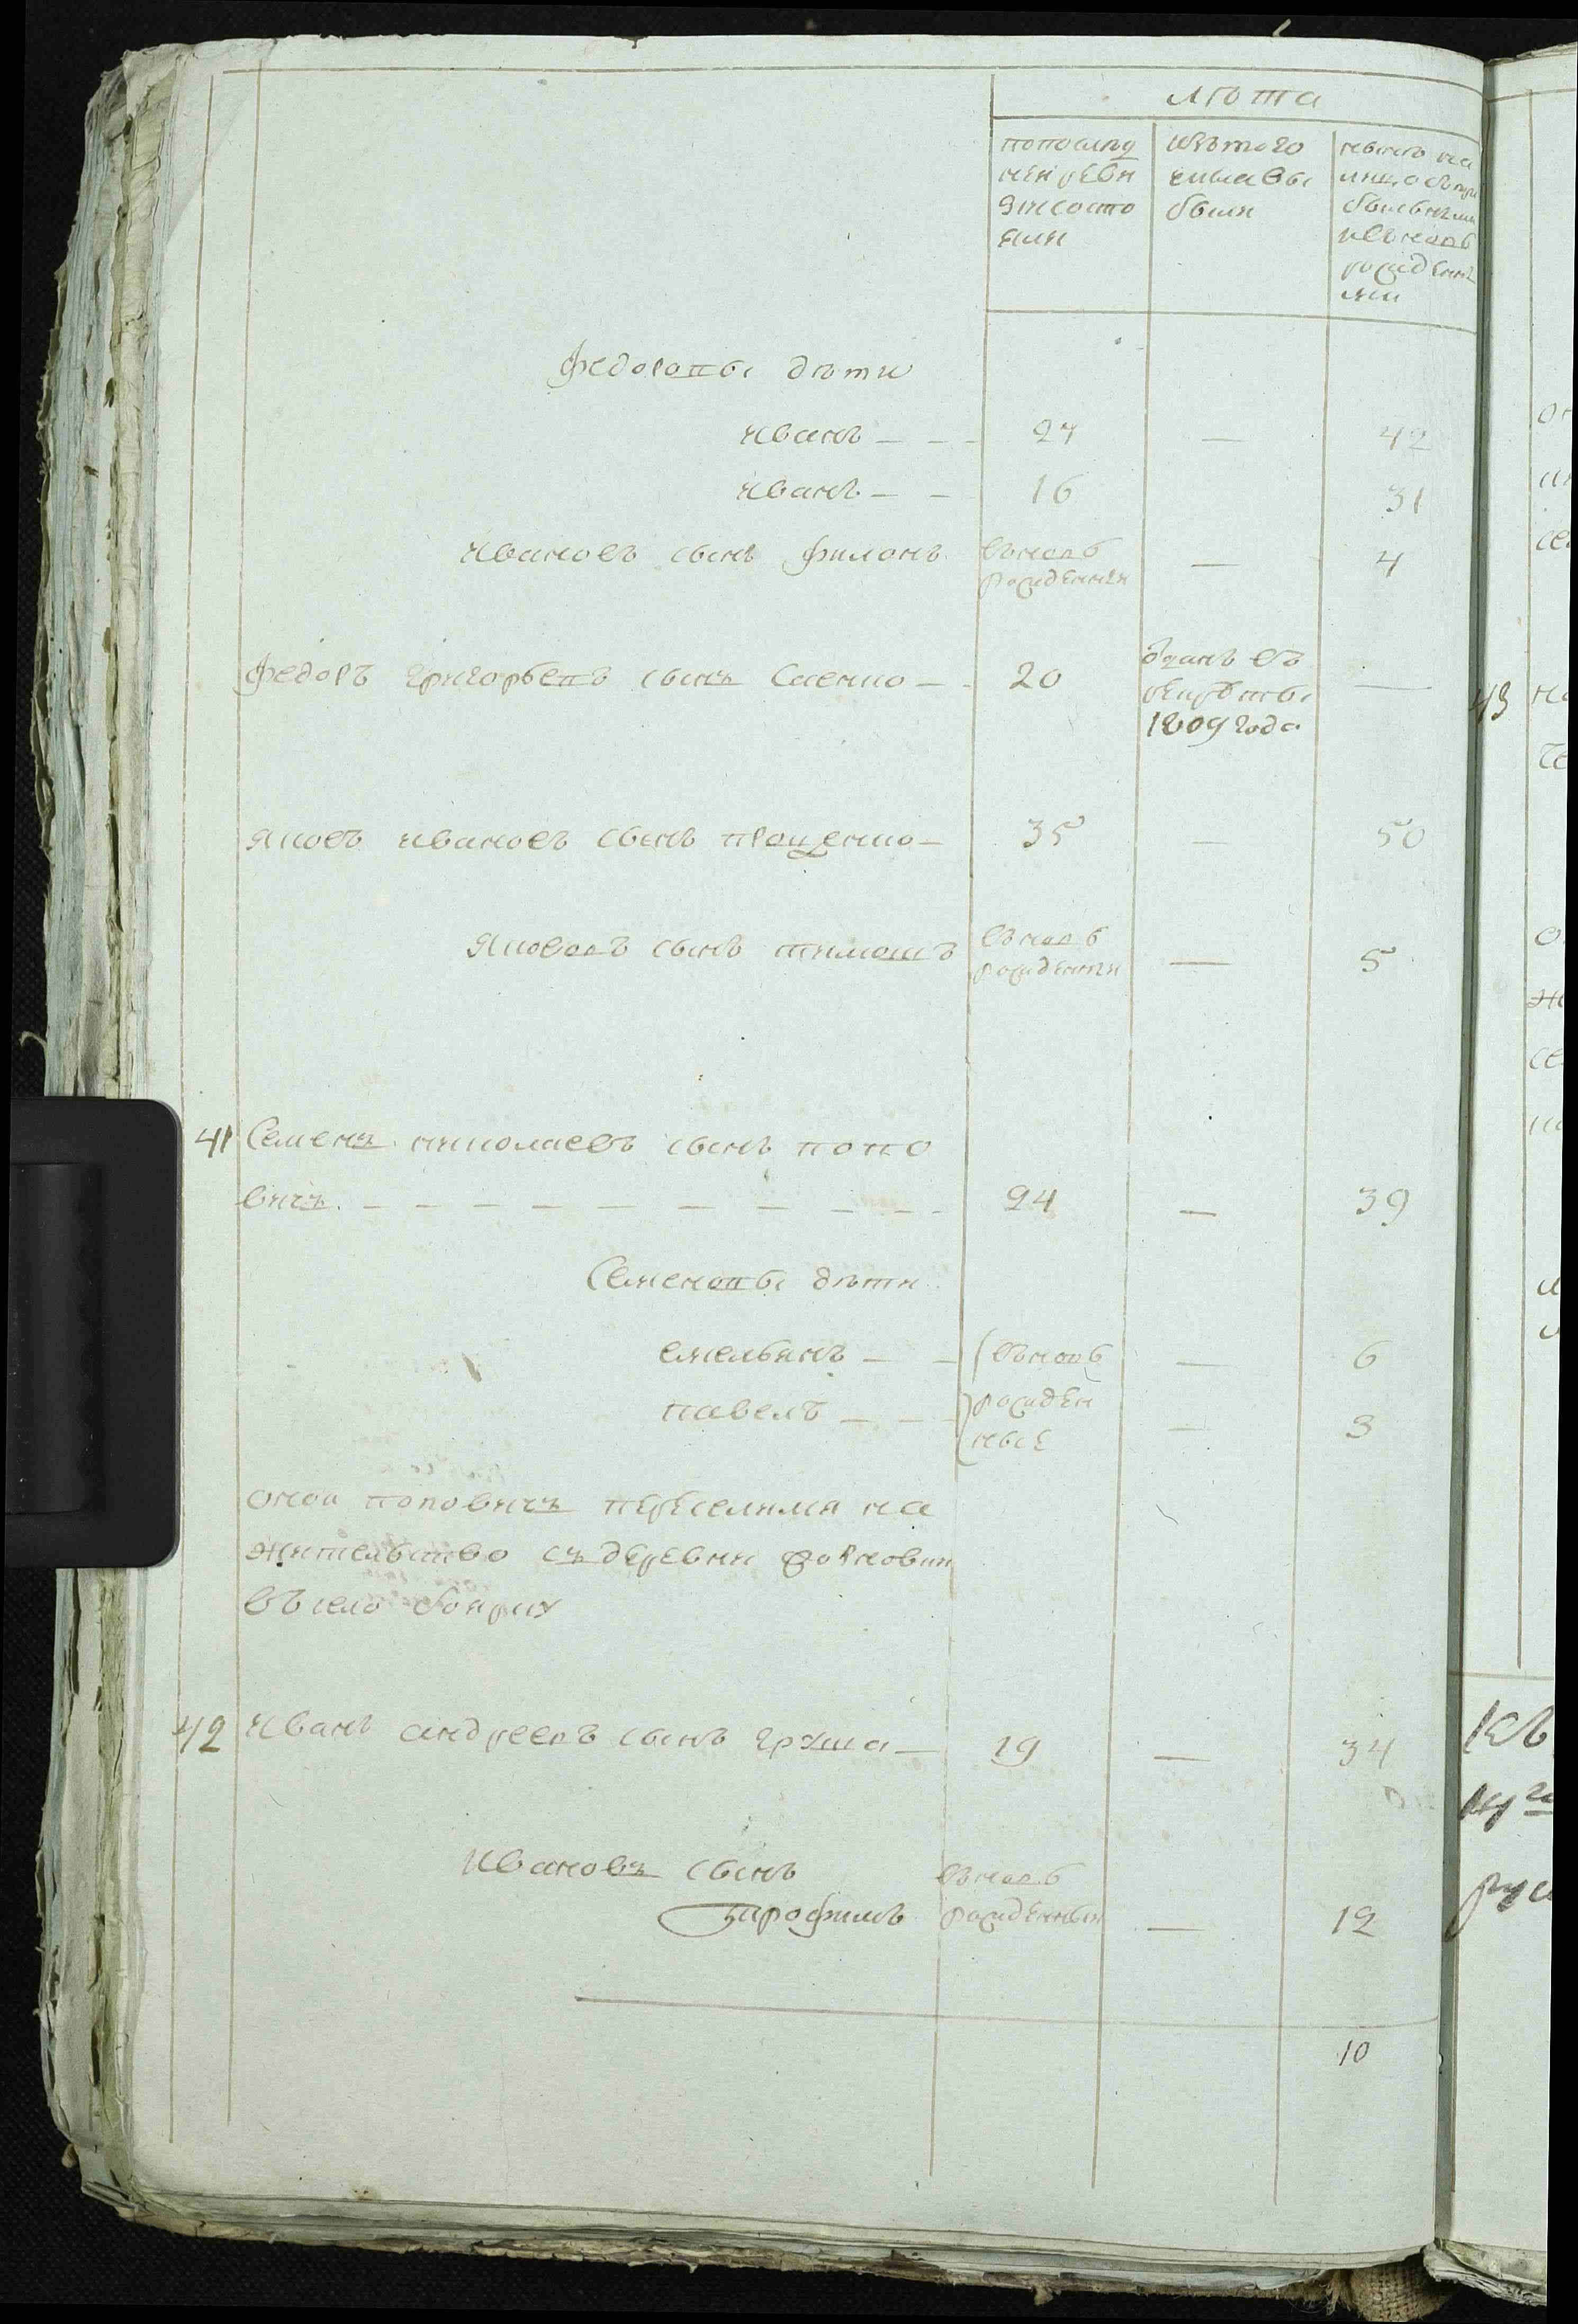 лѣта
попослед
ней реви
зии состо
яли
изъ того
числа вы
были
нынѣ на
лицо съ при
былыми
и вновь
рожденны
ми
Федоровы дѣти
Иванъ — — 27 — 42
Иванъ — — 16 31
Ивановъ сынъ Филонъ вновь рожденный — 4
Федоръ Григорьевъ сынъ Саенко — 20 отданъ въ рекруты 1809 года —
Яковъ Ивановъ сынъ Проценко — 35 — 50
Яковлевъ сынъ Тимошъ вновь рожденный — 5
41 Семенъ Николаевъ сынъ Попо
вичъ — — — — — — — — — 24 — 39
Семеновы дѣти
Емельянъ — — вновь — 6
Павелъ — — рожден
ные — 3
оной Поповичъ переселился на
жительство съ деревни
въ село Боярку
42 Иванъ Андреевъ сынъ Груша — 19 — 34
Ивановъ сынъ
Трофимъ вновь рожденный — 12
10
43